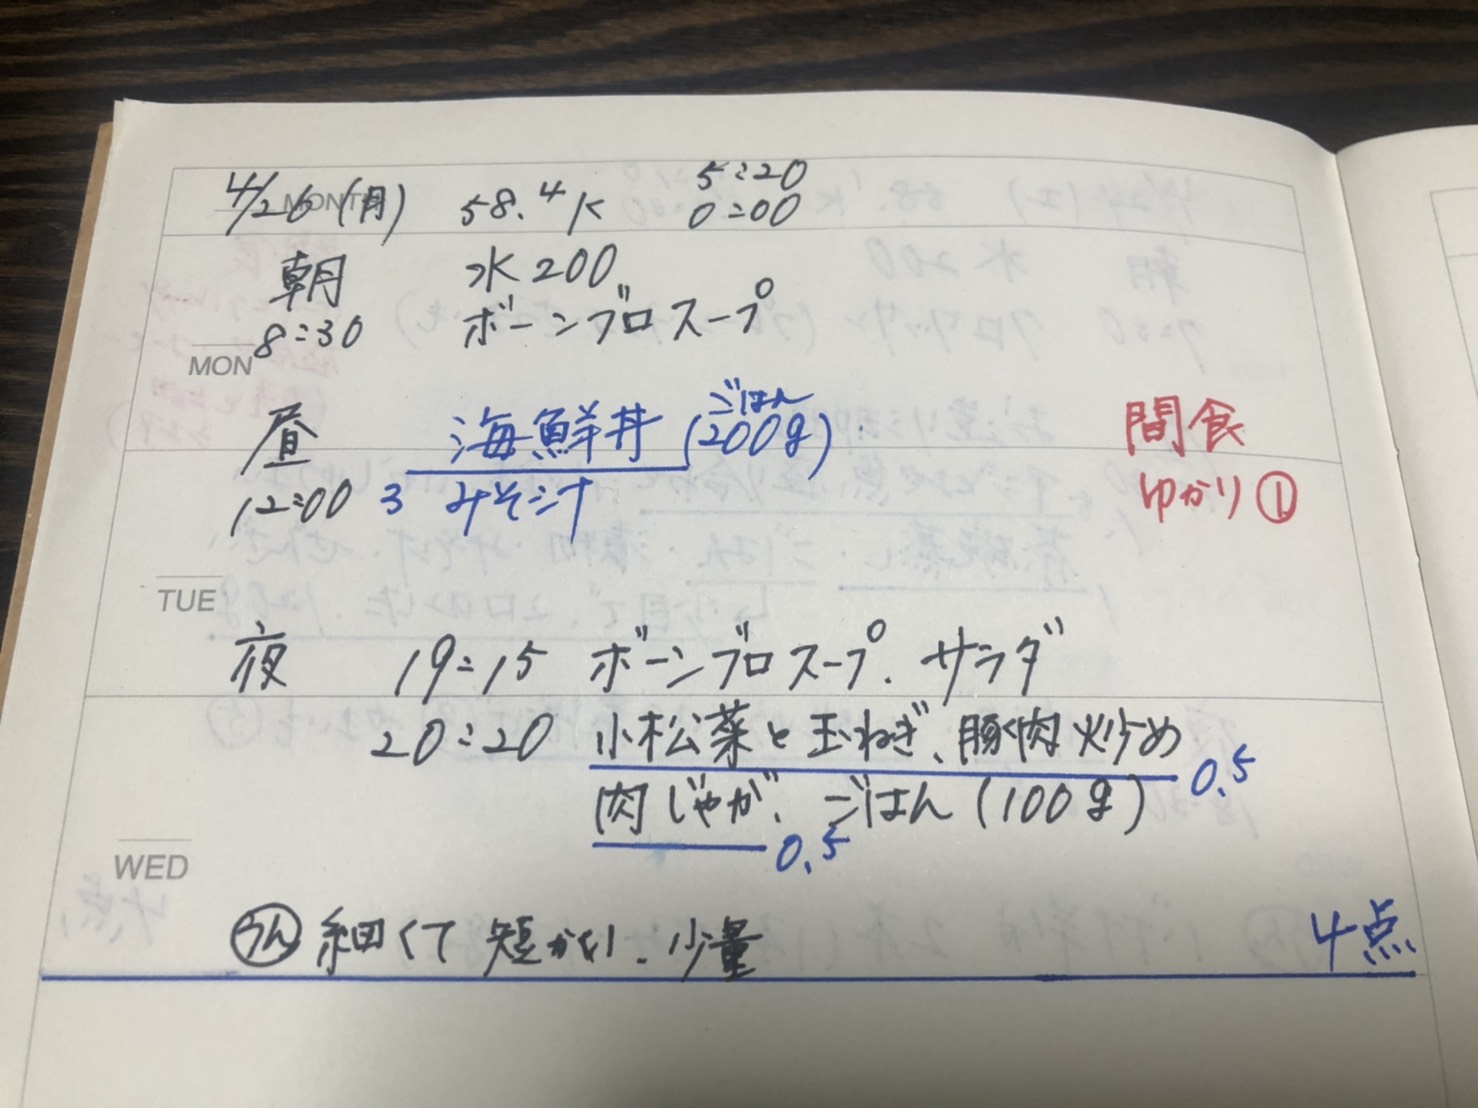 MONTH
4/26 (月) 58.4K 5:20
0:00
朝 水200
8:30 ボーンブロスープ
MON
昼 海鮮丼 (ごはん200g)
12:00 3 みそ汁
間食
ゆかり ①
TUE
夜 19:15 ボーンブロスープ. サラダ
20:20 小松菜と玉ねぎ、豚肉炒め 0.5
肉じゃが、ごはん (100g)
0.5
WED
うん 細くて 短かい、少量
4点